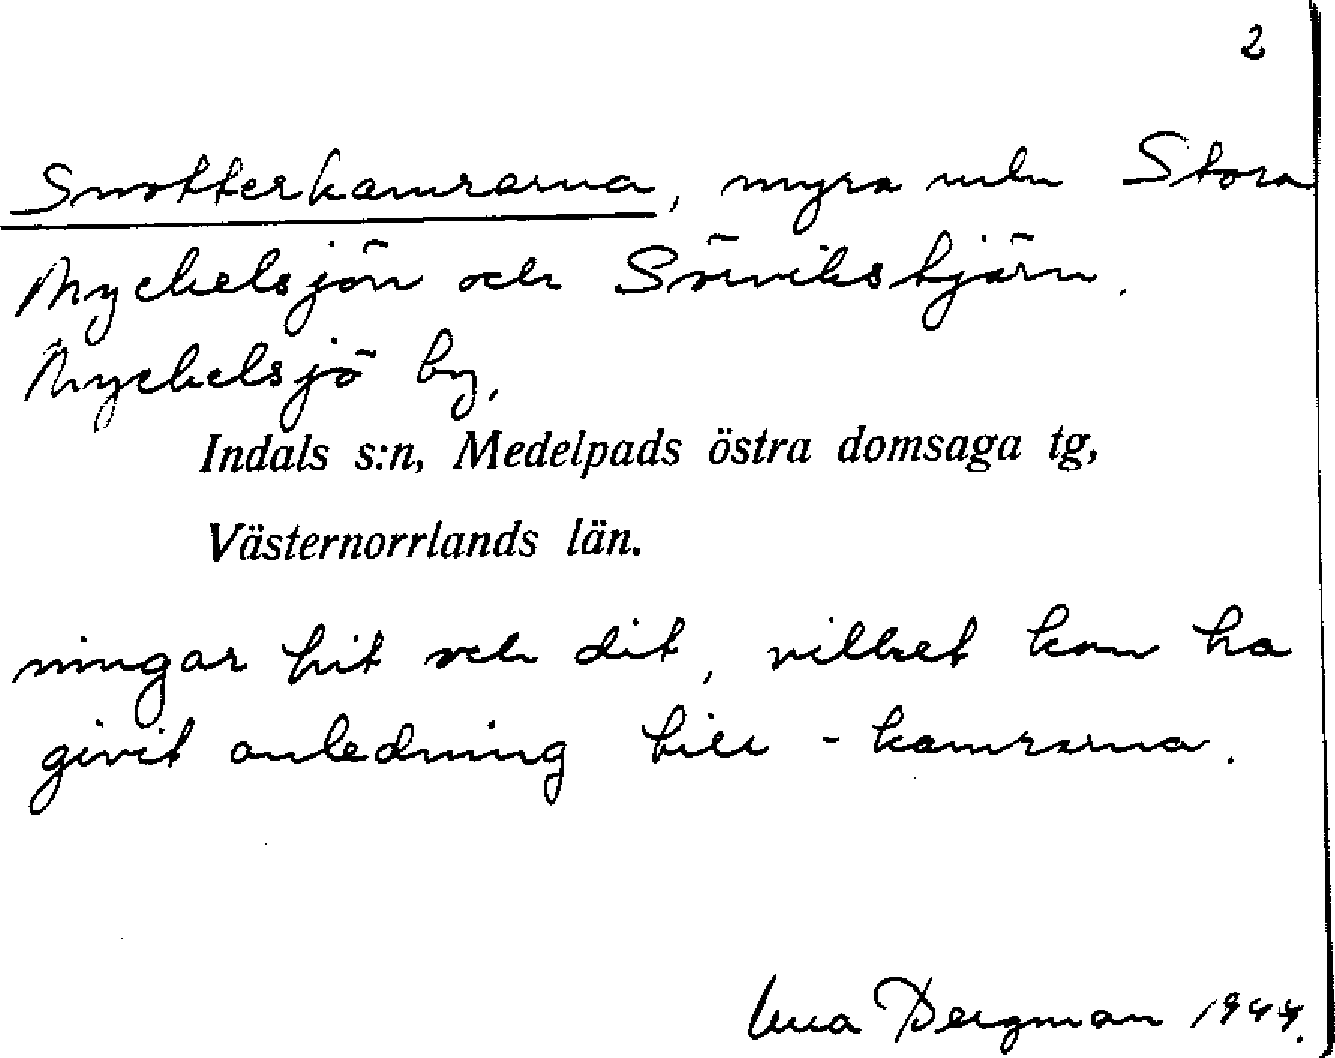 2
Snotterkamrarna, myra mln Stora
Myckelsjön och Sörvikstjärn.
Myckelsjö by,
Indals s:n, Medelpads östra domsaga tg,
Västernorrlands län.
ningar hit och dit, vilket kan ha
givit anledning till -kamrarna.
Bergman 1944.